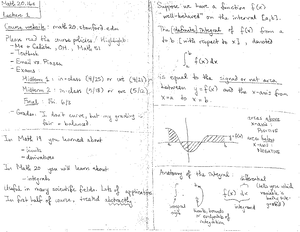 Math 20, Win
Lecture 1
Course website: math20.stanford.edu
Please read the course policies! Highlight:
- Me + CAs, OH, Math 51
- Textbook
- Email vs. Piazza
- Exams
Midterm 1: in-class
Midterm 2: in-class
Final:
Grades: I don't curve, but my grading is
fair + balanced
In Math 19 you learned about
- limits
- derivatives
In Math 20 you will learn about
- integrals
Useful in many scientific fields. Lots of applications.
In first half of course, treated abstractly.
Suppose we have a function f(x)
"well-behaved" on the interval [a,b].
The (definite) integral of f(x) from a
to b [with respect to x], denoted
∫ f(x) dx
is equal to the signed or net area
between y=f(x) and the x-axis from
x=a to x=b.
areas above
x-axis:
POSITIVE
areas below
x-axis:
NEGATIVE
Anatomy of the integral:
differential
∫ f(x) dx
integral
sign
limits, bounds
or endpoints of
integration
integrand